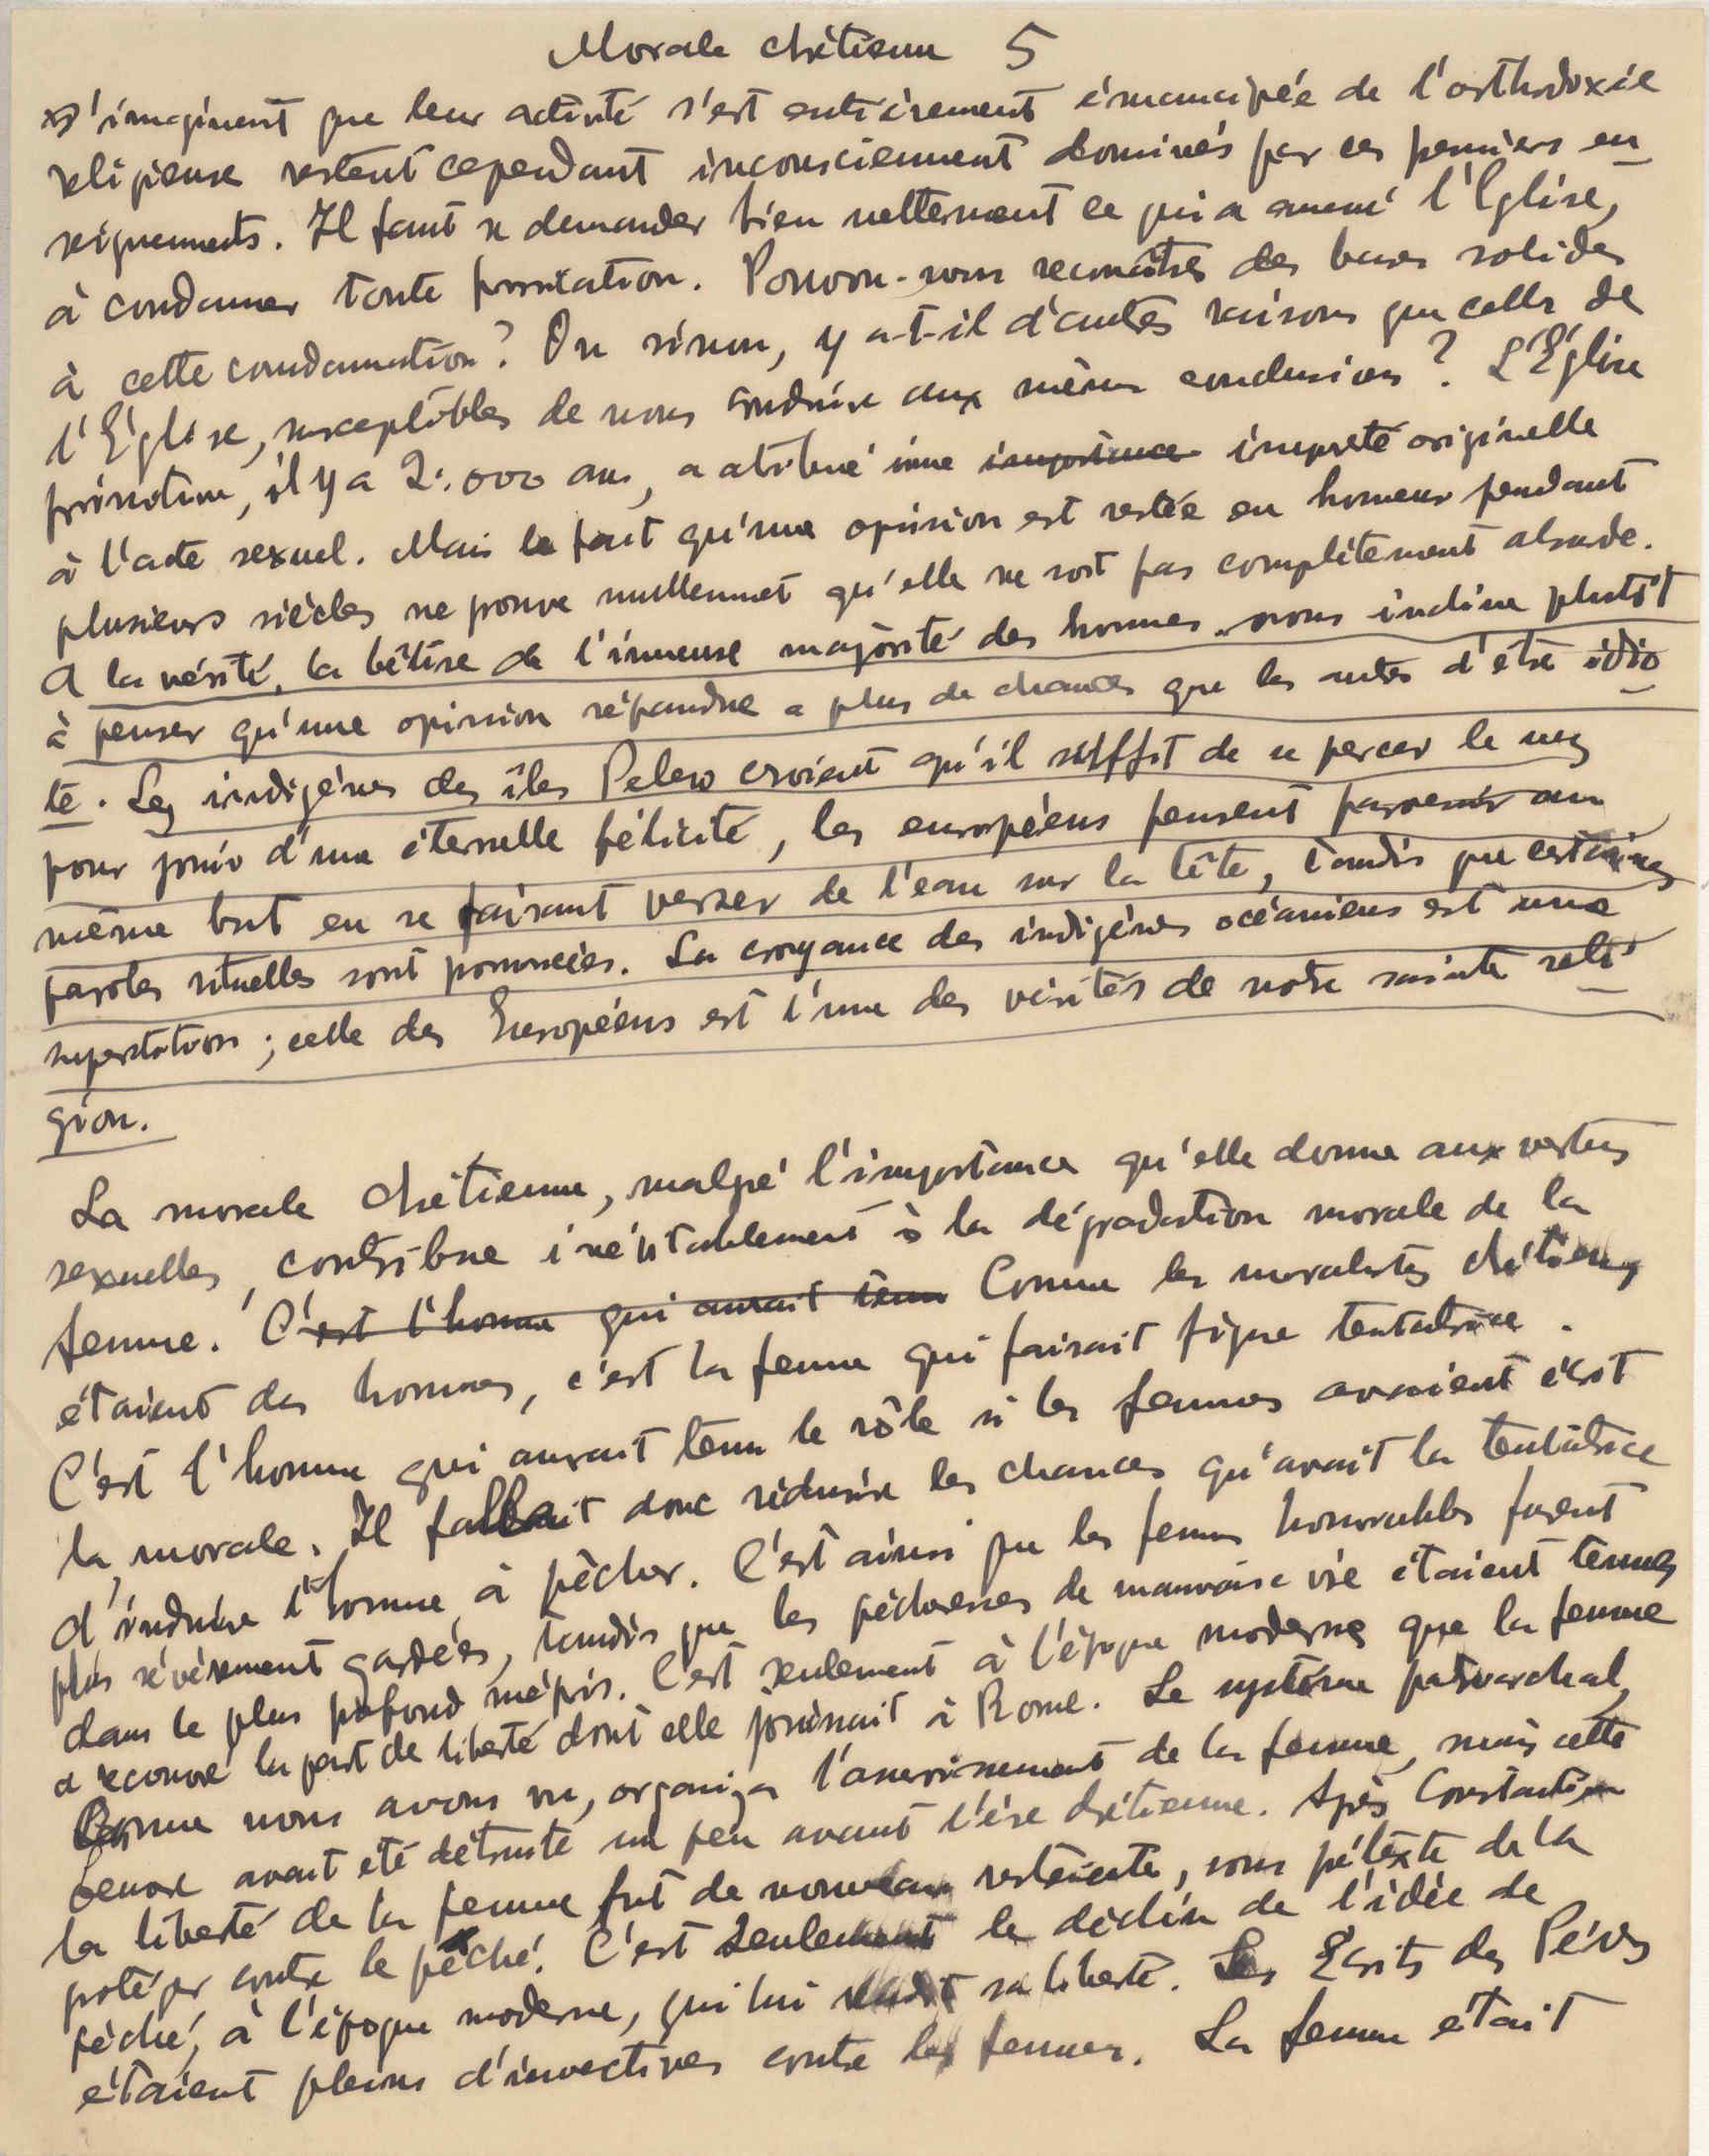 Morale chrétienne 5
s'imaginent que leur activité s'est entièrement émancipée de l'orthodoxie
religieuse restent cependant inconsciemment dominés par ces premiers en
seignements. Il faut se demander bien nettement ce qui a amené l'Eglise,
à condamner toute fornication. Pouvon-nous reconnaître des bases solides
à cette condamnation? Ou sinon, y a-t-il d'autres raisons que celles de
l'Église, susceptibles de nous conduire aux mêmes conclusions? L'Église
primitive, il y a 2.000 ans, a attribué une importance impureté originelle
à l'acte sexuel. Mais le fait qu'une opinion est restée en honneur pendant
plusieurs siècles ne prouve nullement qu'elle ne soit pas complètement absurde.
A la vérité, la bêtise de l'immense majorité des hommes nous incline plutôt
à penser qu'une opinion répandue a plus de chances que les autres d'être idio
te. Les indigènes des îles Pelew croient qu'il suffit de se percer le nez
pour jouir d'une éternelle félicité, les européens pensent parvenir au
même but en se faisant verser de l'eau sur la tête, tandis que certaines
paroles rituelles sont prononcées. La croyance des indigènes océaniens est une
superstition; celle des Européens est l'une des vérités de notre sainte reli
gion.
La morale chrétienne, malgré l'importance qu'elle donne aux vertus
sexuelles, contribue inévitablement à la dégradation morale de la
femme. C'est l'homme qui aurait tenu Comme les moralistes chrétiens
étaient des hommes, c'est la femme qui faisait figure tentatrice.
C'est l'homme qui aurait tenu le rôle si les femmes avaient écrit
la morale. Il fallait donc réduire les chances qu'avait la tentatrice
d'induire l'homme à pêcher. C'est ainsi que les femmes honorables furent
plus sévèrement gardées, tandis que les pécheresses de mauvaise vie étaient tenues
dans le plus profond mépris. C'est seulement à l'époque moderne que la femme
a recouvré la part de liberté dont elle jouissait à Rome. Le système patriarchal,
Comme nous avons vu, organisa l'asservissement de la femme, mais cette
oeuvre avait été détruite un peu avant l'ère chrétienne. Après Constantin
la liberté de la femme fut de nouveau restreinte, sous prétexte de la
protéger contre le péché. C'est seulement le déclin de l'idée de
péché, à l'époque moderne, qui lui rendit sa liberté. Les Écrits des Pères
étaient pleins d'invectives contre les femmes. La femme était